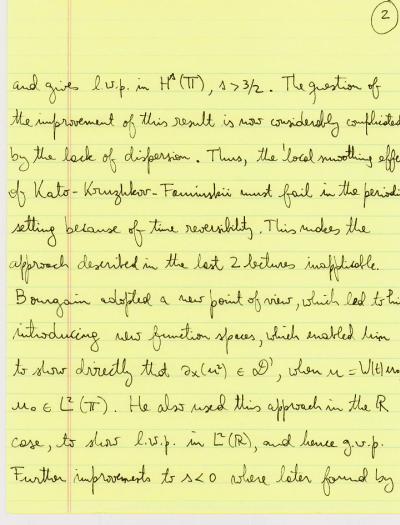 2
and gives l.w.p. in H^s(𝕋), s > 3/2. The question of
the improvement of this result is now considerably complicated
by the lack of dispersion. Thus, the local smoothing effe
of Kato-Kruzhkov-Faminskii must fail in the periodi
setting because of time reversibility. This makes the
approach described in the last 2 lectures inapplicable.
Bourgain adopted a new point of view, which led to hi
introducing new function spaces, which enabled him
to show directly that ∂x(u²) ∈ 𝒟', when u = W(t)u₀
u₀ ∈ L²(𝕋). He also used this approach in the ℝ
case, to show l.w.p. in L²(ℝ), and hence g.w.p.
Further improvements to s<0 where later found by